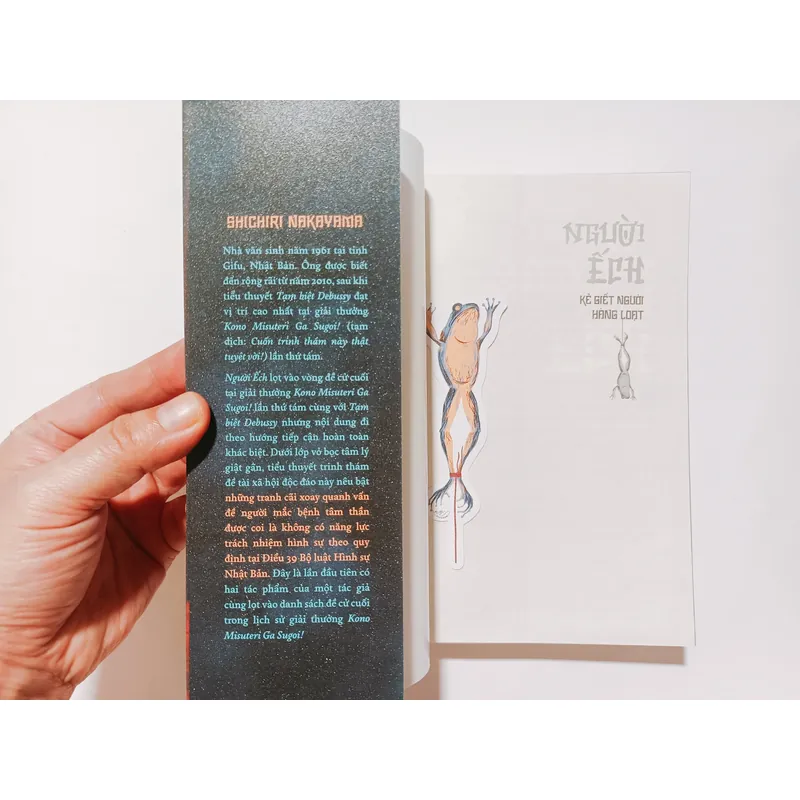 SHICHIRI NAKAYAMA
Nhà văn sinh năm 1961 tại tỉnh
Gifu, Nhật Bản. Ông được biết
đến rộng rãi từ năm 2010, sau khi
tiểu thuyết Tạm biệt Debussy đạt
vị trí cao nhất tại giải thưởng
Kono Misuteri Ga Sugoi! (tạm
dịch: Cuốn trinh thám này thật
tuyệt vời!) lần thứ tám.
Người Ếch lọt vào vòng đề cử cuối
tại giải thưởng Kono Misuteri Ga
Sugoi! lần thứ tám cùng với Tạm
biệt Debussy nhưng nội dung đi
theo hướng tiếp cận hoàn toàn
khác biệt. Dưới lớp vỏ bọc tâm lý
giật gân, tiểu thuyết trinh thám
đề tài xã hội độc đáo này nêu bật
những tranh cãi xoay quanh vấn
đề người mắc bệnh tâm thần
được coi là không có năng lực
trách nhiệm hình sự theo quy
định tại Điều 39 Bộ luật Hình sự
Nhật Bản. Đây là lần đầu tiên có
hai tác phẩm của một tác giả
cùng lọt vào danh sách đề cử cuối
trong lịch sử giải thưởng Kono
Misuteri Ga Sugoi!
NGƯỜI
ẾCH
KẺ GIẾT NGƯỜI
HÀNG LOẠT